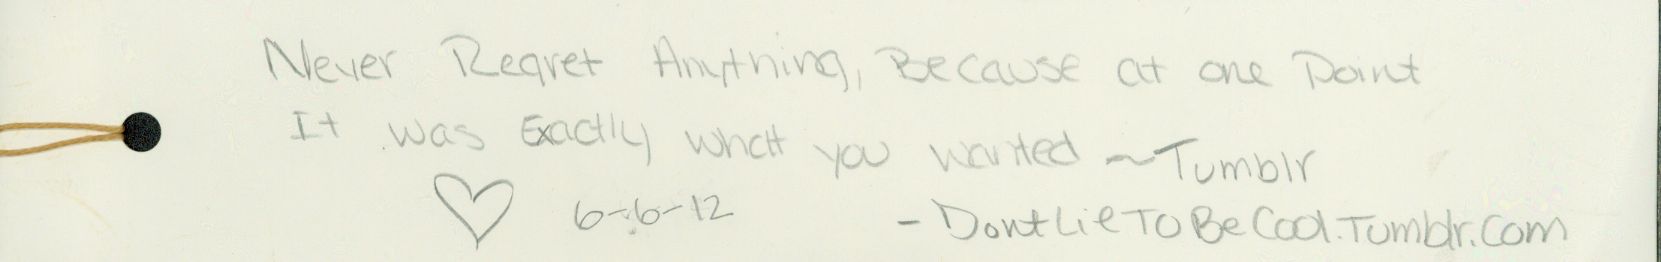 Never Regret Anything, Because at one Point
It was Exactly what you wanted ~Tumblr
♡ 6-6-12 - DontLieToBeCool.Tumblr.com